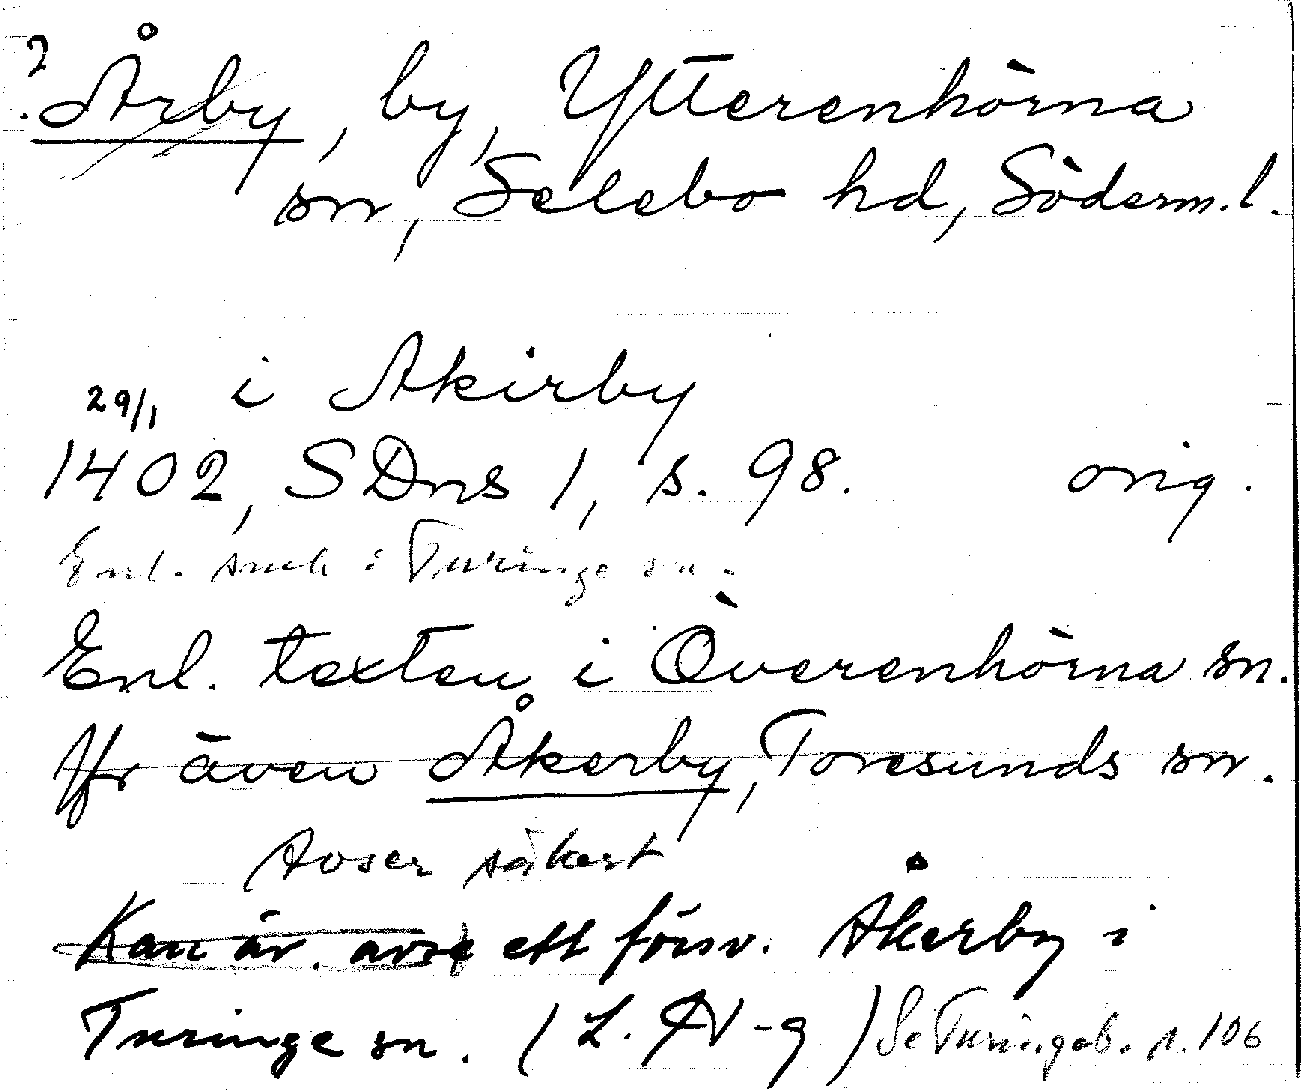 ? Årby, by, Ytterenhörna
sn, Selebo hd, Söderm.l.
i Akirby
29/1
1402, SDns 1, s. 98. orig.
Enl. senh i Turinge sn.
Enl. texten i Överenhörna sn.
Jfr även Åkerby, Toresunds sn.
Avser säkert
Kan äv. avse ett försv. Åkerby i
Turinge sn. (L. H-g) Se Turingeb. s. 106